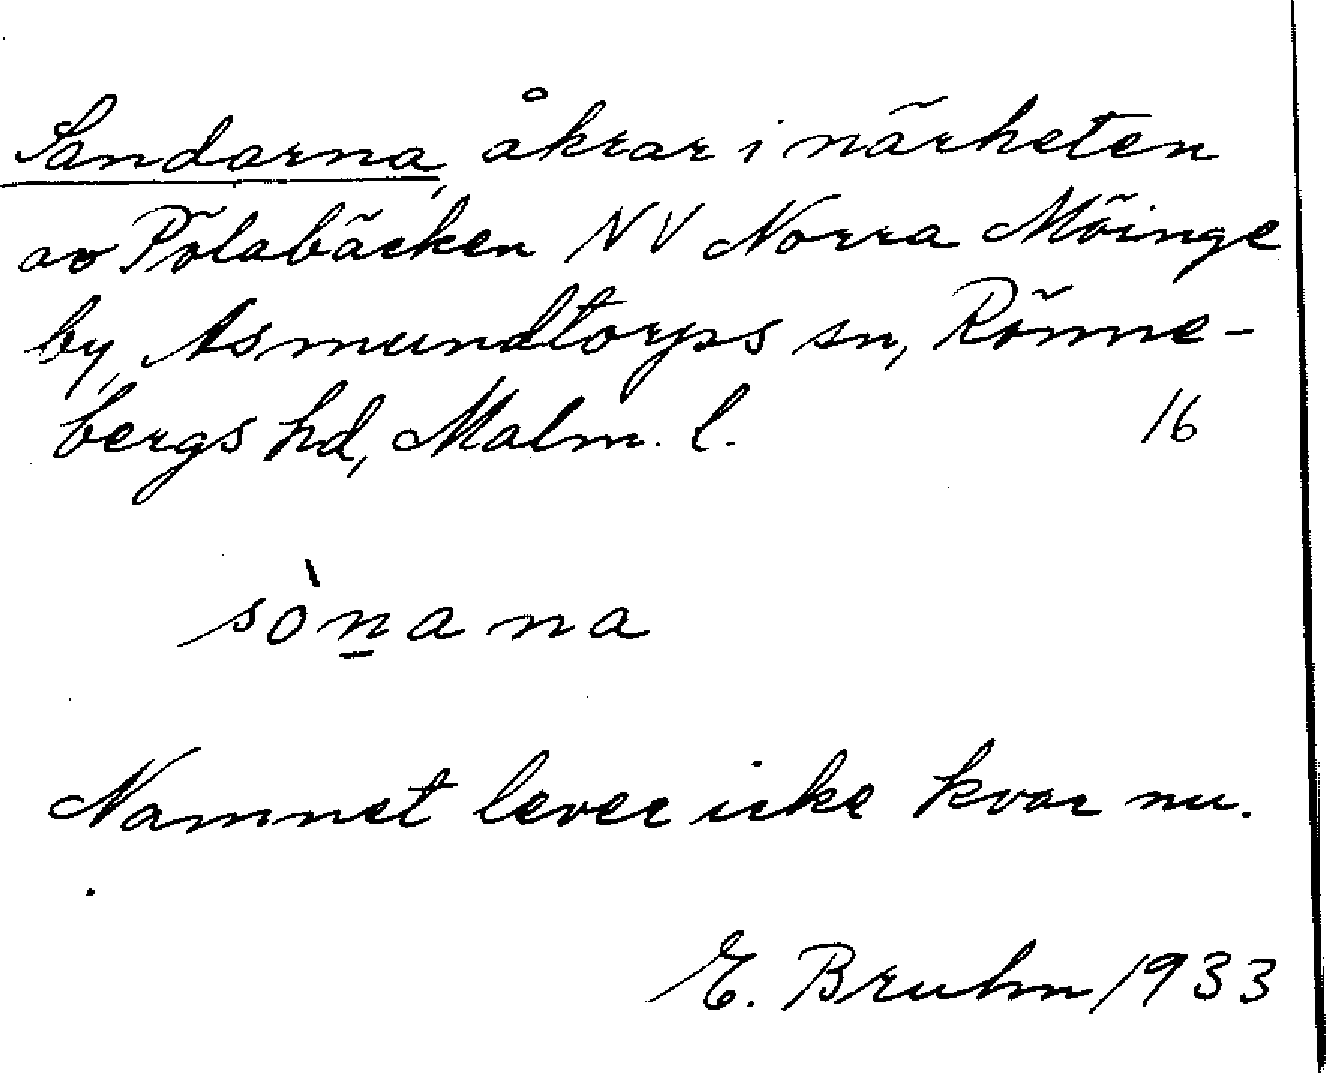 Sandarna, åkrar i närheten
av Pölabäcken NV Norra Möinge
by, Asmundtorps sn, Rönne-
bergs hd, Malm. l. 16
sò̱nana
Namnet lever icke kvar nu.
E. Bruhn 1933